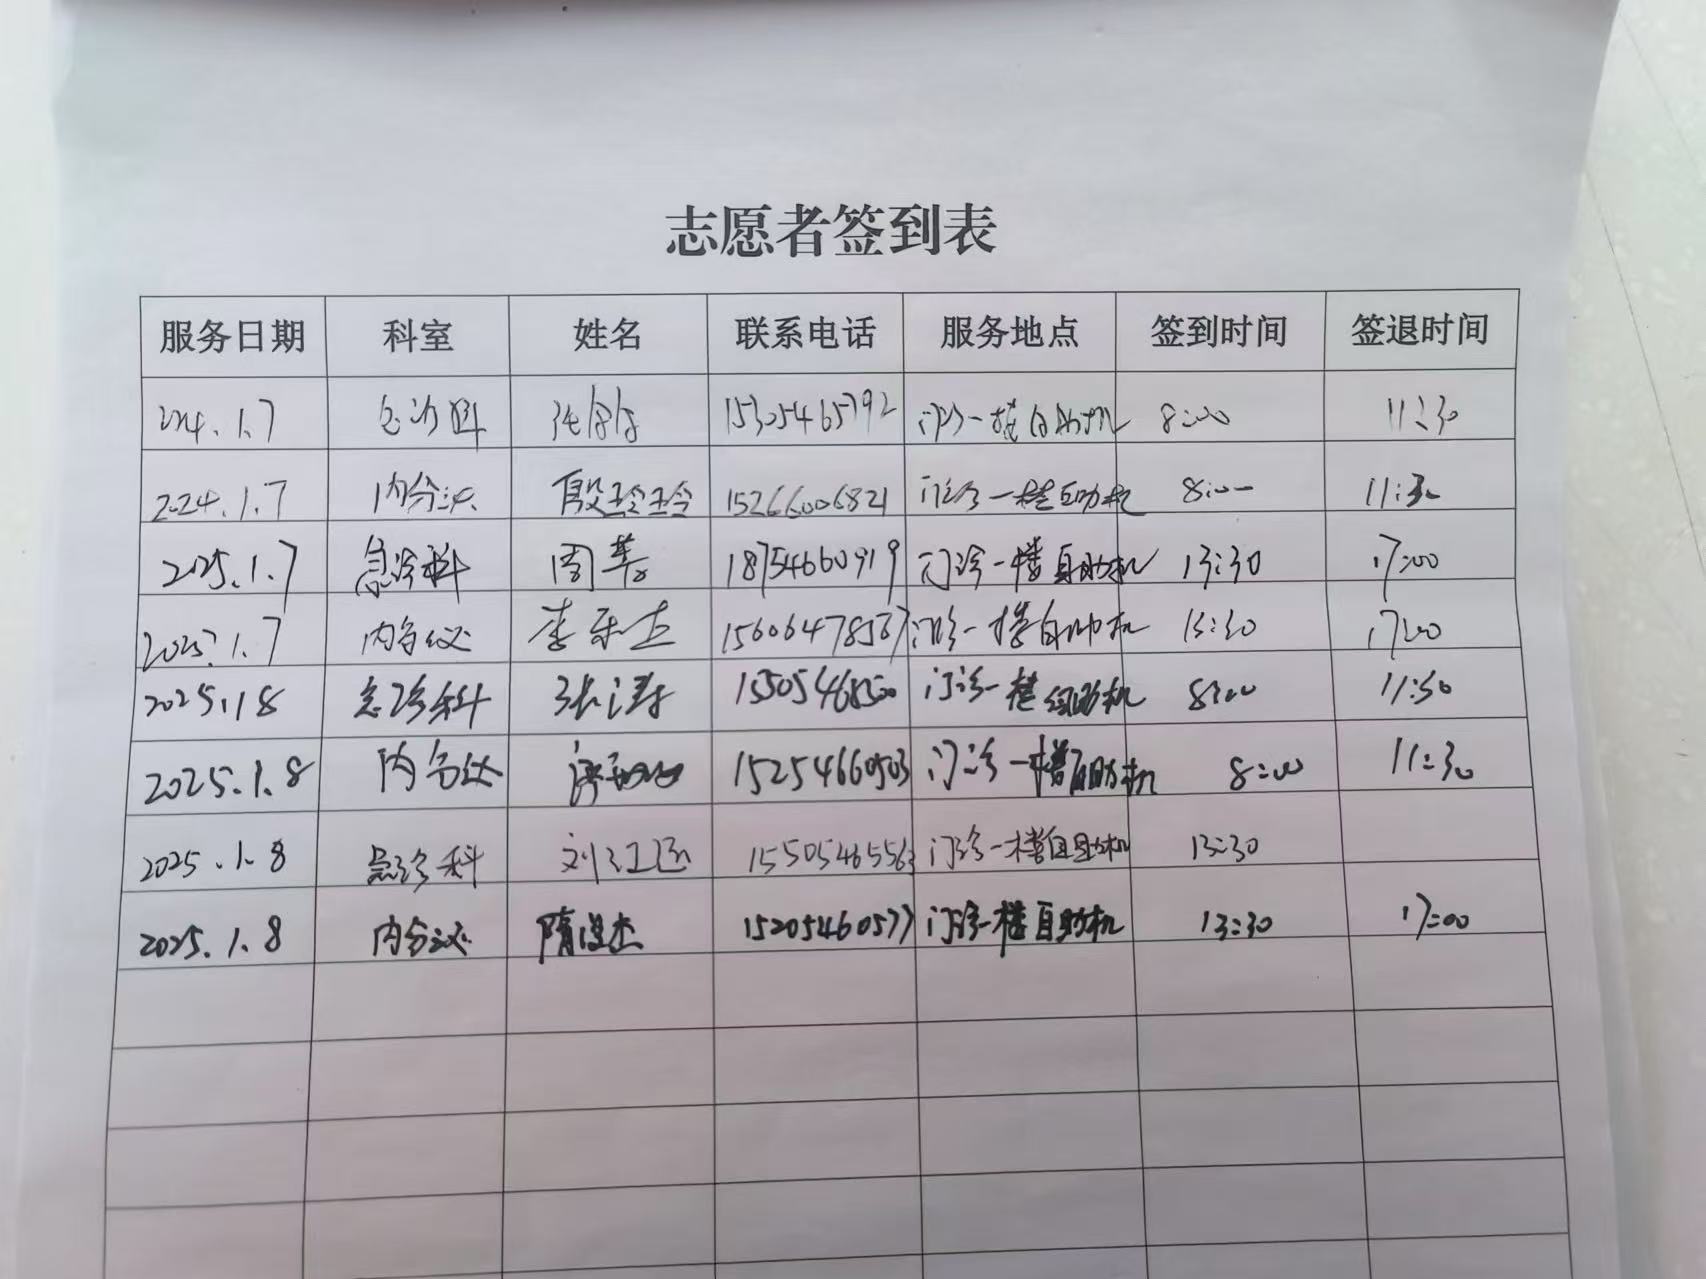 志愿者签到表
服务日期 科室 姓名 联系电话 服务地点 签到时间 签退时间
2024.1.7 急诊科 15305465792 门诊一楼自助机 8:00 11:30
2024.1.7 内分泌 殷玲玲 15266006821 门诊一楼自助机 8:00 11:30
2025.1.7 急诊科 周 18754660919 门诊一楼自助机 13:30 17:00
2025.1.7 内分泌 李乐杰 15606478567 门诊一楼自助机 13:30 17:00
2025.1.8 急诊科 张涛 15505468500 门诊一楼自助机 8:00 11:30
2025.1.8 内分泌 15254660503 门诊一楼自助机 8:00 11:30
2025.1.8 急诊科 刘江 15505465563 门诊一楼自助机 13:30
2025.1.8 内分泌 隋俊杰 15205460577 门诊一楼自助机 13:30 17:00